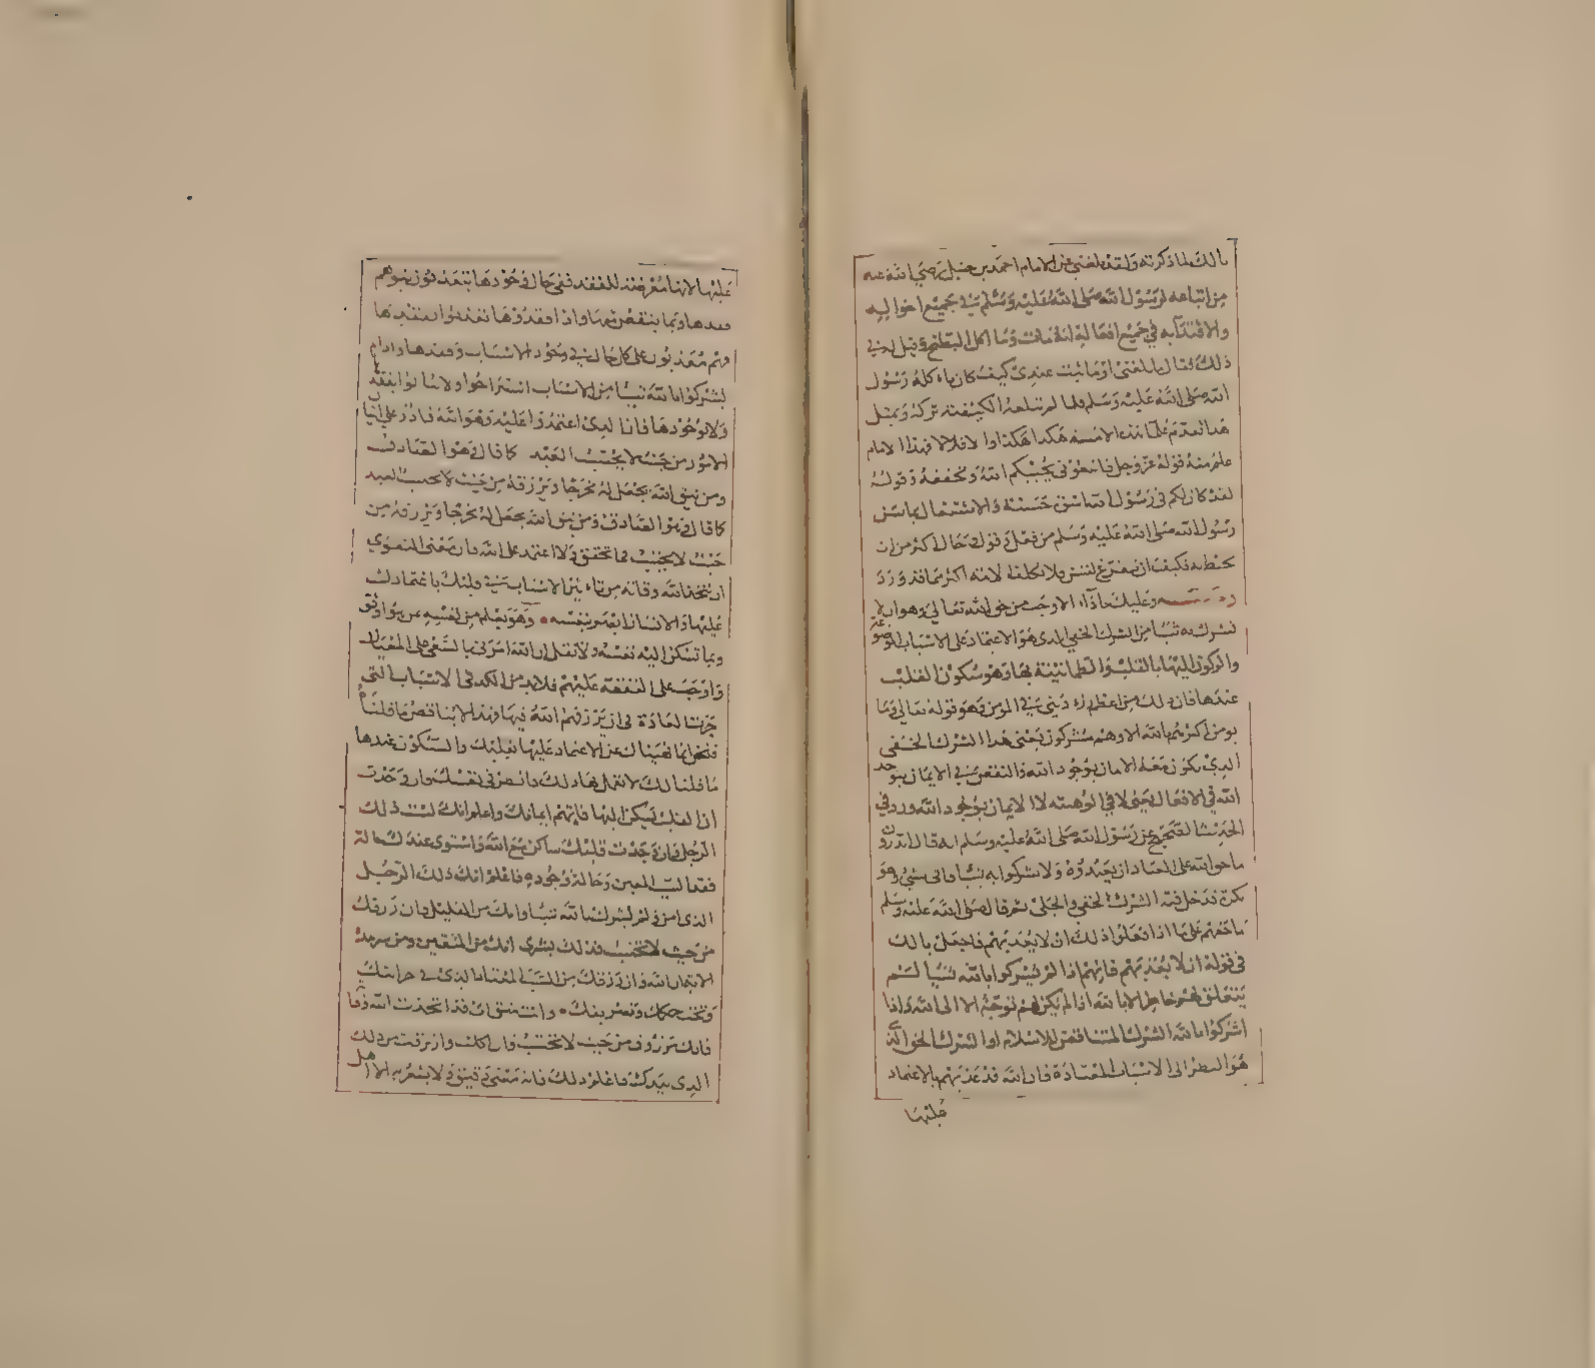 بالك لما ذكرته ولقد بلغني عن الامام احمد بن حنبل رضي الله عنه
من اتباعه لرسول الله صلى الله عليه وسلم في جميع احواله
والاقتداء به في جميع افعاله انه مات وما اكل البطيخ وقيل له في
ذلك فقال ما بلغني او ما ثبت عندي كيف كان ياكله رسول
الله صلى الله عليه وسلم فلما لم تبلغه الكيفية تركه وبمثل
هذا تقدم علما هذه الامة هكذا هكذا والا فلا لا فهذا الامام
علم معنى قوله عز وجل فاتبعوني يحببكم الله وتحققه وقوله
لقد كان لكم في رسول الله اسوة حسنة والاشتغال بما سن
رسول الله صلى الله عليه وسلم من فعل وقول وحال اكثر من ان
يحيط به فكيف ان نتفرغ لنسن فلا نكلف الامة اكثر مما قد ورد
وصية وعليك باداء الاوجب من حق الله تعالى وهو ان لا
تشرك به شيئا من الشرك الخفي الذي هو الاعتماد على الاسباب الموضوعة
والركون اليها بالقلب والطمانينة بها وهو سكون القلب
عندها فان ذلك من اعظم رزية دينية في المومن وهو قوله تعالى وما
يومن اكثرهم بالله الا وهم مشركون يعني هذا الشرك الخفي
الذي يكون معه الايمان بوجود الله والنقص في الايمان بتوحيد
الله في الافعال يعني لا في الوهيته لا الايمان بوجود الله وورد في
الحديث الصحيح عن رسول الله صلى الله عليه وسلم انه قال اتدرون
ما حق الله على العباد ان يعبدوه ولا يشركوا به شيئا واتى بشيء وهو
نكرة فدخل فيه الشرك الخفي والجلي ثم قال صلى الله عليه وسلم
ما حقهم على الله اذا فعلوا ذلك ان لا يعذبهم فاجعل بالك
في قوله ان لا يعذبهم فانهم اذا لم يشركوا بالله شيئا لم
يتعلق لهم خاطر الا بالله اذا لم يكن لهم توجه الا الى الله واذا
اشركوا بالله الشرك المناقض للاسلام او الشرك الخفي الذي
هو النظر الى الاسباب المعتادة فان الله قد عذبهم بالاعتماد
عليها
عليها لانها معرضة للفقد ففي حال وجودها يتعذبون بتوهم
فقدها وبما ينقص منها واذا فقدوها تعذبوا بفقدها
فهم معذبون على كل حال في وجود الاسباب وفقدها واذا لم
يشركوا بالله شيئا من الاسباب استراحوا ولا يبالوا بفقد
ولا بوجودها فان الذي اعتمدوا عليه وهو الله قادر على اتيان
الامور من حيث لا يحتسب العبد كما قال وهو الصادق
ومن يتق الله يجعل له مخرجا ويرزقه من حيث لا يحتسب العبد
كما قال وهو الصادق ومن يتق الله يجعل له مخرجا ويرزقه من
حيث لا يحتسب فما تحقق والا اعتمد على الله فان معنى التقوى
ان يتخذ الله وقاية من تاثير الاسباب في قلبك باعتمادك
عليها والانسان ابصر بنفسه وهو يعلم من نفسه بمن هو اوثق
وبما تسكن اليه نفسه ولا تقل ان الله امرني بالسعي على العيال
واوجب على النفقة عليهم فلا بد من الكد في الاسباب التي
جرت العادة في ان يرزقهم الله فيها وهذا لا يناقض ما قلناه
فنحن انما نهيناك عن الاعتماد عليها بقلبك والسكون عندها
ما قلنا لك لا تعمل بها ذلك فانظر في نفسك فان وجدت
ان القلب يسكن اليها فاتهم ايمانك واعلم انك لست ذلك
الرجل فان وجدت قلبك ساكن مع الله واستوى عندك حالة
فقد السبب المعين وحالة وجوده فاعلم انك ذلك الرجل
الذي امن ولم يشرك بالله شيئا وانك من القليل فان رزقك
من حيث لا تحتسب فذلك بشرى انك من المتقين ومن
الايمان بالله وان رزقك من السبب المعتاد الذي في خزانتك
وتحت حكمك وتصريفك وانت متق اي قد اتخذت الله وقا
فانك مرزوق من حيث لا تحتسب وان اكلت وارتزقت من ذلك
الذي بيدك فاعلم ذلك فانه معنى دقيق ولا يشعر به الا اهل